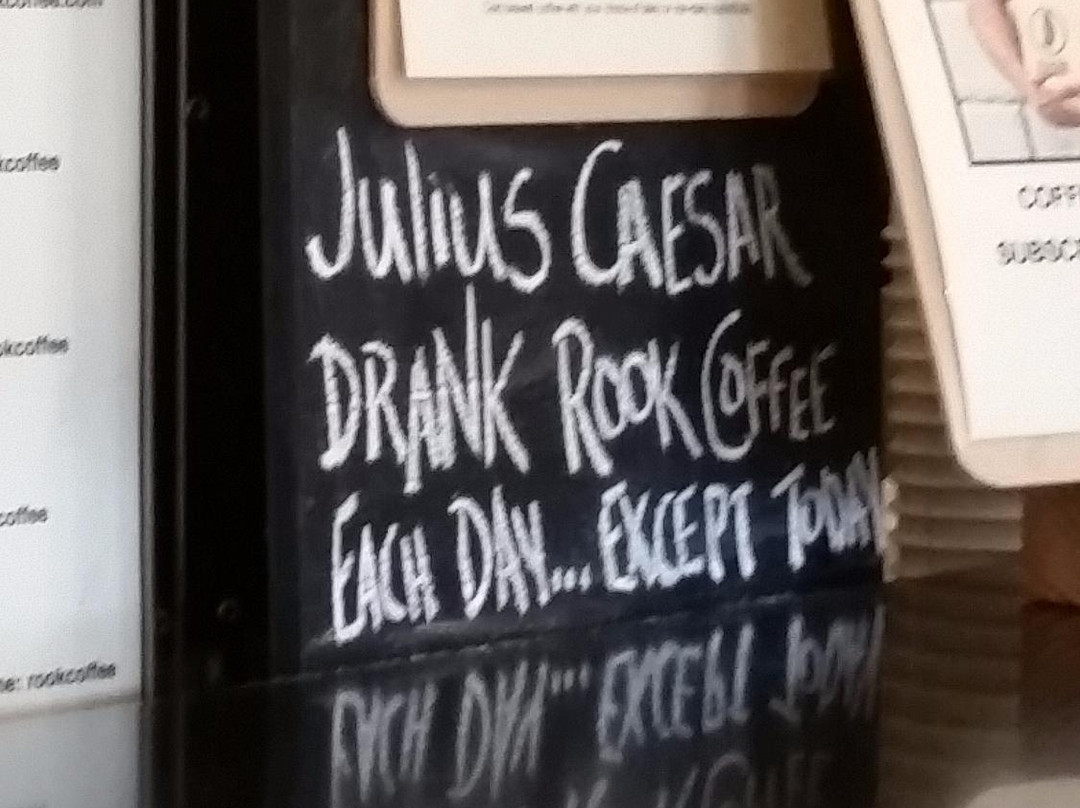 kcoffee
okcoffee
coffee
e: rookcoffee
JULIUS CAESAR
DRANK ROOK COFFEE
EACH DAY... EXCEPT TODAY
COFF
SUBSC